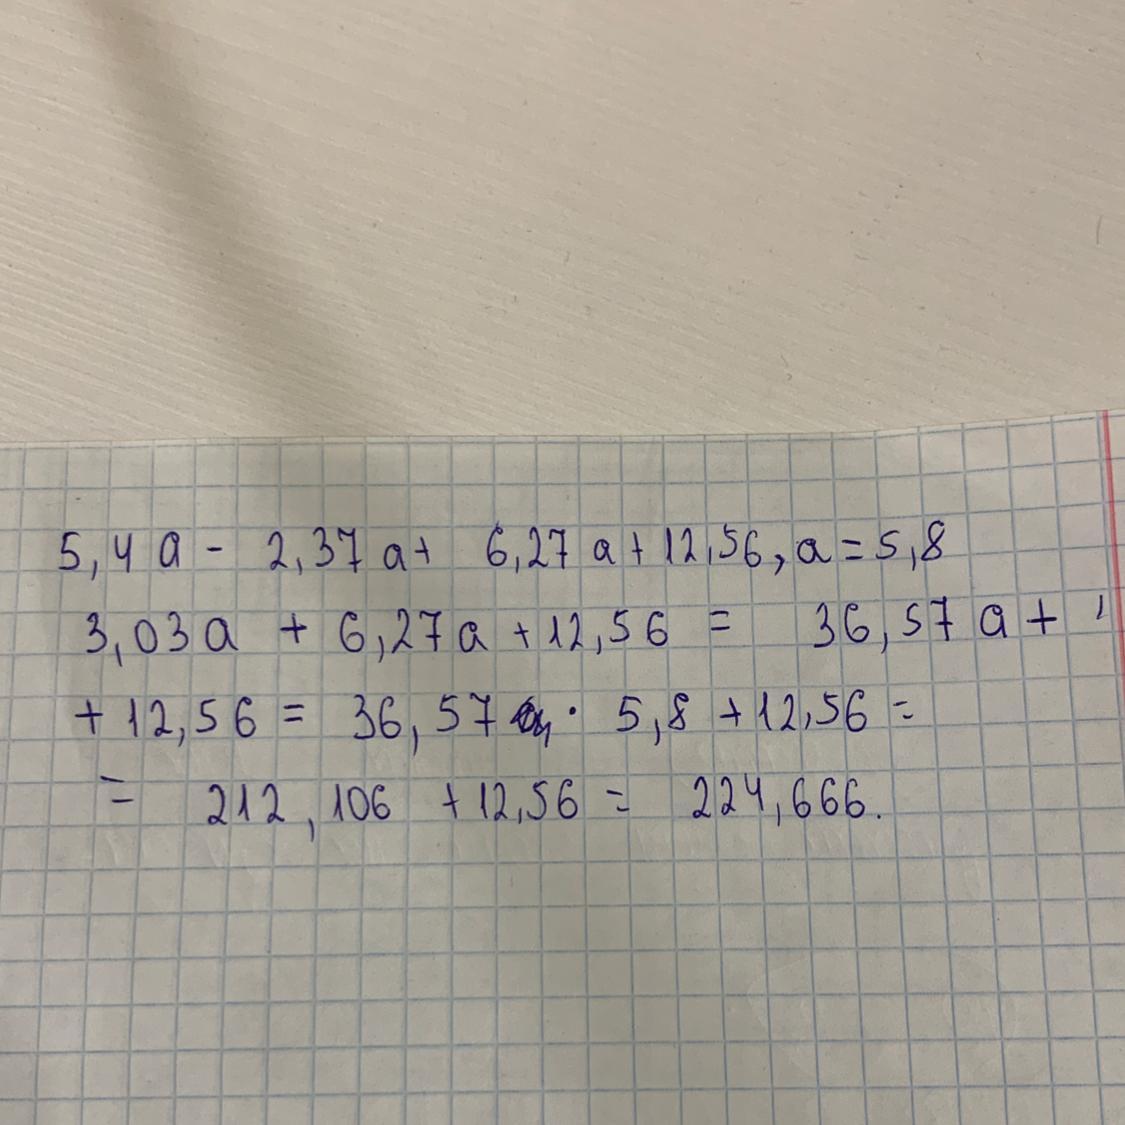 5,4a - 2,37a + 6,27a + 12,56, a = 5,8
3,03a + 6,27a + 12,56 = 36,57a +
+ 12,56 = 36,57 · 5,8 + 12,56 =
= 212,106 + 12,56 = 224,666.